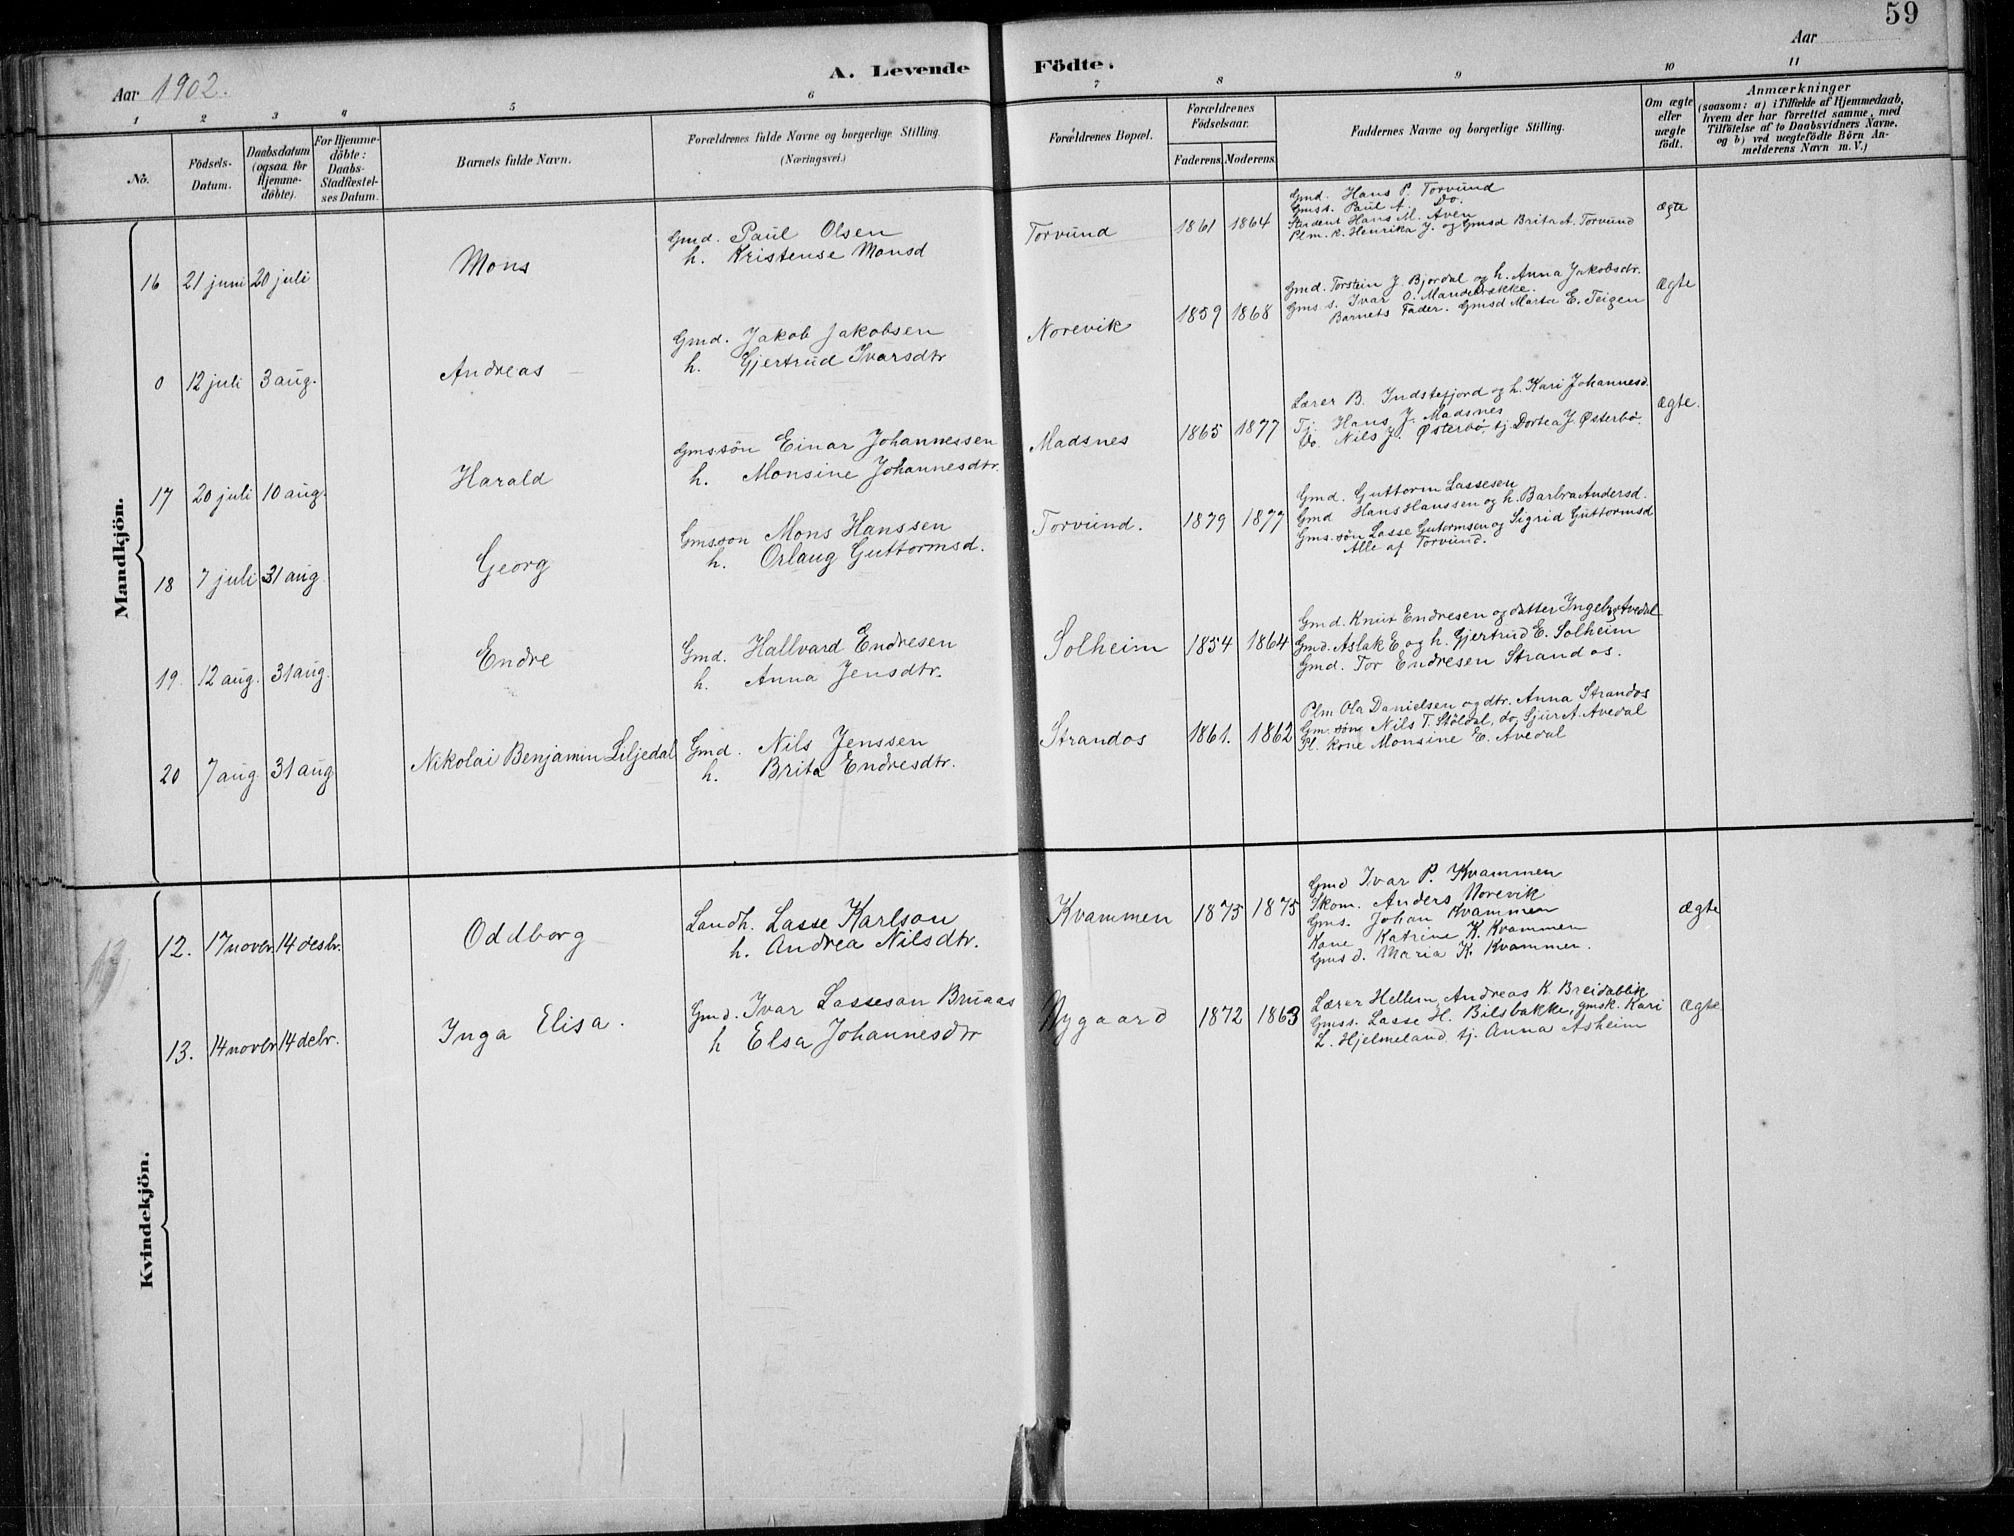 59
Aar 1902.
A. Levende Födte.
Aar
1 2 3 4 5 6 7 8 9 10 11
No.
Födsels-Datum.
Daabsdatum (ogsaa for Hjemme-döbte).
For Hjemme-döbte: Daabs-Stadfæstel-ses Datum.
Barnets fulde Navn.
Forældrenes fulde Navne og borgerlige Stilling.
(Næringsvei.)
Forældrenes Bopæl.
Forældrenes Födselsaar.
Faderens. Moderens.
Faddernes Navne og borgerlige Stilling.
Om ægte eller uægte födt.
Anmærkninger
(saasom: a) i Tilfælde af Hjemmedaab,
hvem der har forrettet samme, med
Tilföielse af to Daabsvidners Navne,
og b) ved uægtefödte Börn An-
melderens Navn m. V.)
Mandkjön.
16 21 juni 20 juli Mons
Gmd. Paul Olsen
h. Kristense Monsd
Torvund 1861 1864
Gmd. Hans P. Torvund
Gmss. Paul A. Do.
Student Hans M. Aven
Plm. k. Henrika J. og Gmsd Brita A. Torvund
ægte
0 12 juli 3 aug. Andreas
Gmd. Jakob Jakobsen
h. Gjertrud Ivarsdtr
Norevik 1859 1868
Gmd. Torstein J. Bjordal og h. Anna Jakobsdr.
Gms s. Ivar O. Manderbakke.
Barnets Fader. Gmsd Marta E. Teigen
Ægte
17 20 juli 10 aug. Harald
Gmssön Einar Johannessen
h. Monsine Johannesdtr.
Madsnes 1865 1877
Lærer B. Indstefjord og h. Kari Johannesd.
Tj. Hans J. Madsnes
Do Nils J. Østerbø. tj Dortea J. Østerbø.
Ægte.
18 7 juli 31 aug Georg
Gmsson Mons Hanssen
h. Orlaug Guttormsd.
Torvund. 1879 1877
Gmd. Guttorm Lassesen
Gmd Hans Hanssen og h. Barbra Andersd.
Gms. sön Lasse Gutormsen og Sigrid Guttormsd
Alle af Torvund.
19. 12 aug. 31 aug. Endre
Gmd. Hallvard Endresen
h. Anna Jensdtr.
Solheim 1854 1864
Gmd. Knut Endresen og datter Ingeb. Avedal
Gmd. Aslak E og h. Gjertrud E. Solheim
Gmd. Tor Endresen Strandos.
20 7 aug. 31 aug Nikolai Benjamin Liljedal
Gmd. Nils Jenssen
h. Brita Endresdtr.
Strandos 1861. 1862
Plm Ola Danielsen og dtr. Anna Strandos
Gm. søn Nils T. Stöldal, do Sjur A. Avedal
Pl. kone Monsine E. Avedal
Kvindekjön.
12. 17 novbr. 14 desbr. Oddborg
Landh. Lasse Karlson
h. Andrea Nilsdtr.
Kvammen 1875 1875
Gmd Ivar P. Kvammen
Skom. Anders Norevik
Gms. Johan Kvammen
Kone Katrine K. Kvammen
Gms d. Maria K. Kvammen.
Ægte
13
13. 14 novbr 14 debr. Inga Elisa.
Gmd. Ivar Lasseson Bruaas
h Elsa Johannesdtr
Nygaard 1872 1863
Lærer Hellem, Andreas K. Breidablik
Gmss. Lasse H. Bilsbakke, gmsk. Kari
L. Hjelmeland. tj. Anna Asheim
Ægte